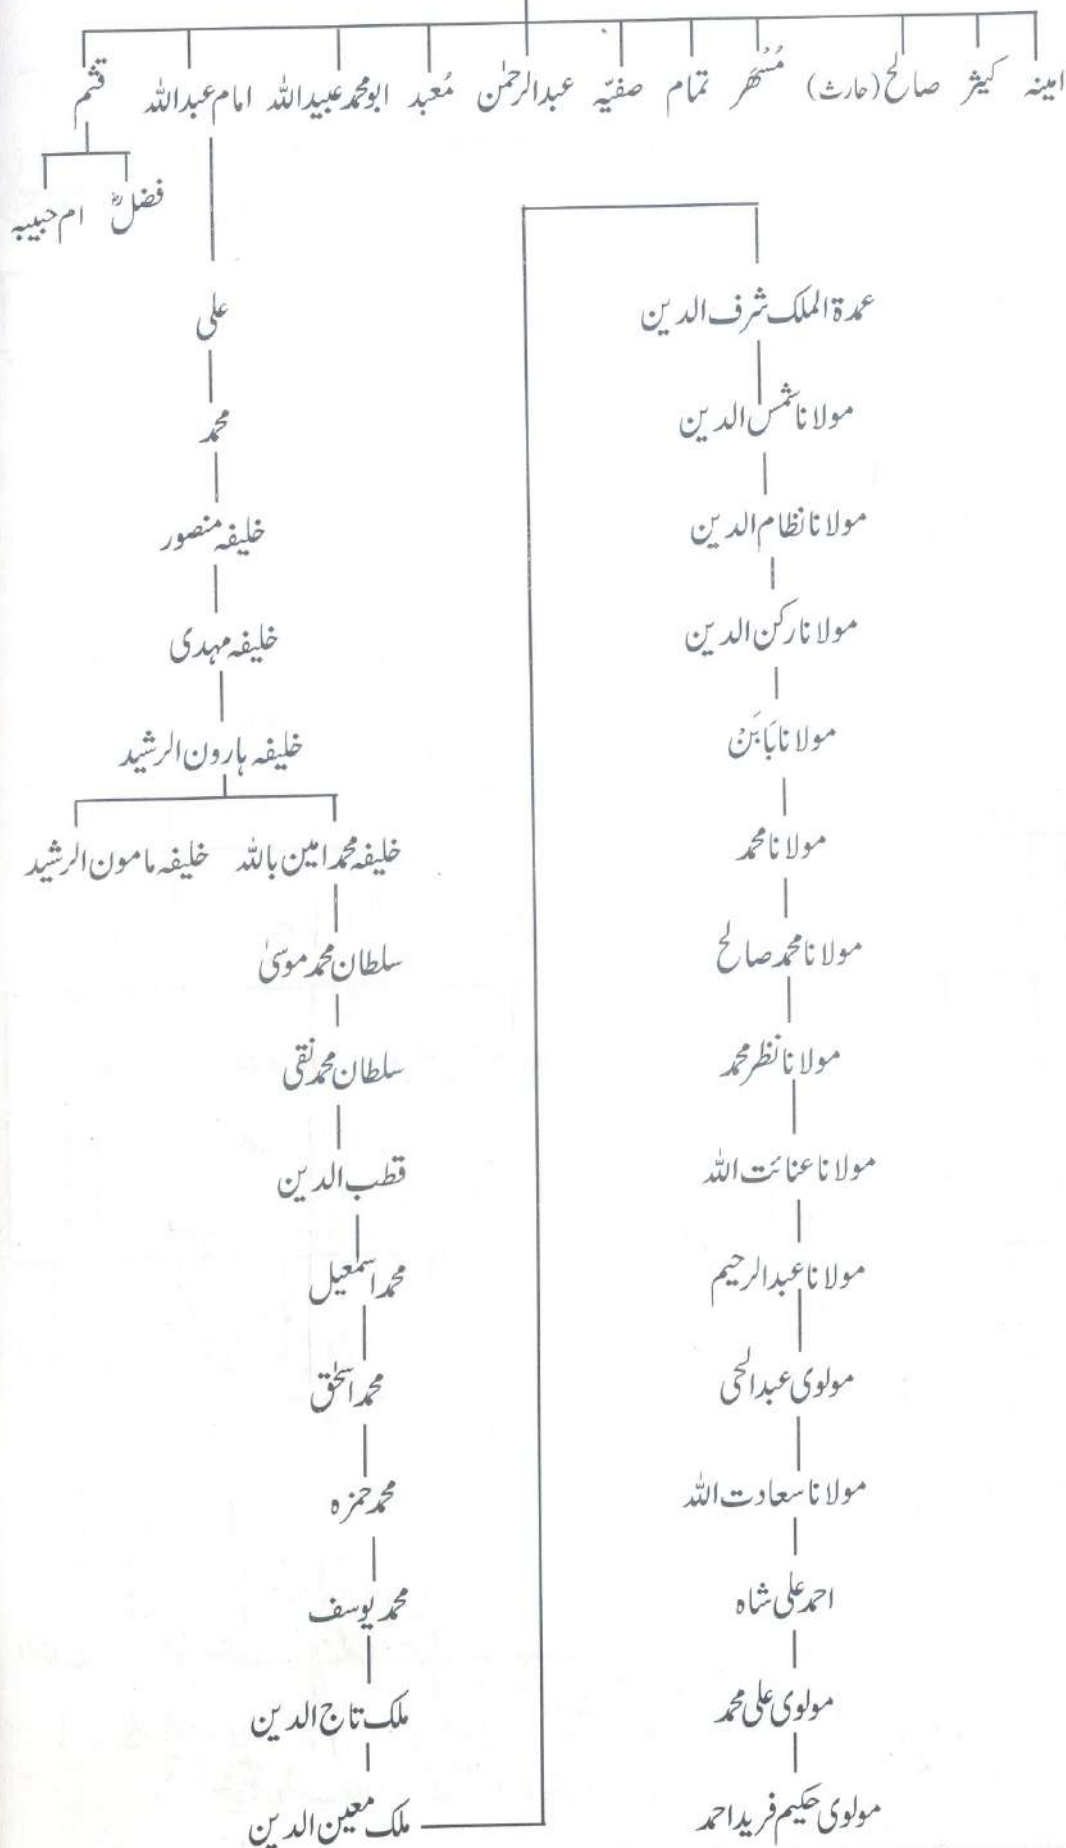 امینہ کیثر صالح (حارث) مُسْهَر تمام صفیّہ عبدالرحمٰن مُعبد ابومحمد عبیداللہ امام عبداللہ قثم
فضلؓ ام حبیبہ
علی
محمد
خلیفہ منصور
خلیفہ مہدی
خلیفہ ہارون الرشید
خلیفہ محمد امین باللہ خلیفہ مامون الرشید
سلطان محمد موسیٰ
سلطان محمد نقی
قطب الدین
محمد اسمٰعیل
محمد اسحٰق
محمد حمزہ
محمد یوسف
ملک تاج الدین
ملک معین الدین
عمدۃ الملک شرف الدین
مولانا شمس الدین
مولانا نظام الدین
مولانا رکن الدین
مولانا بَابَنْ
مولانا محمد
مولانا محمد صالح
مولانا نظر محمد
مولانا عنائت اللہ
مولانا عبدالرحیم
مولوی عبدالحی
مولانا سعادت اللہ
احمد علی شاہ
مولوی علی محمد
مولوی حکیم فرید احمد